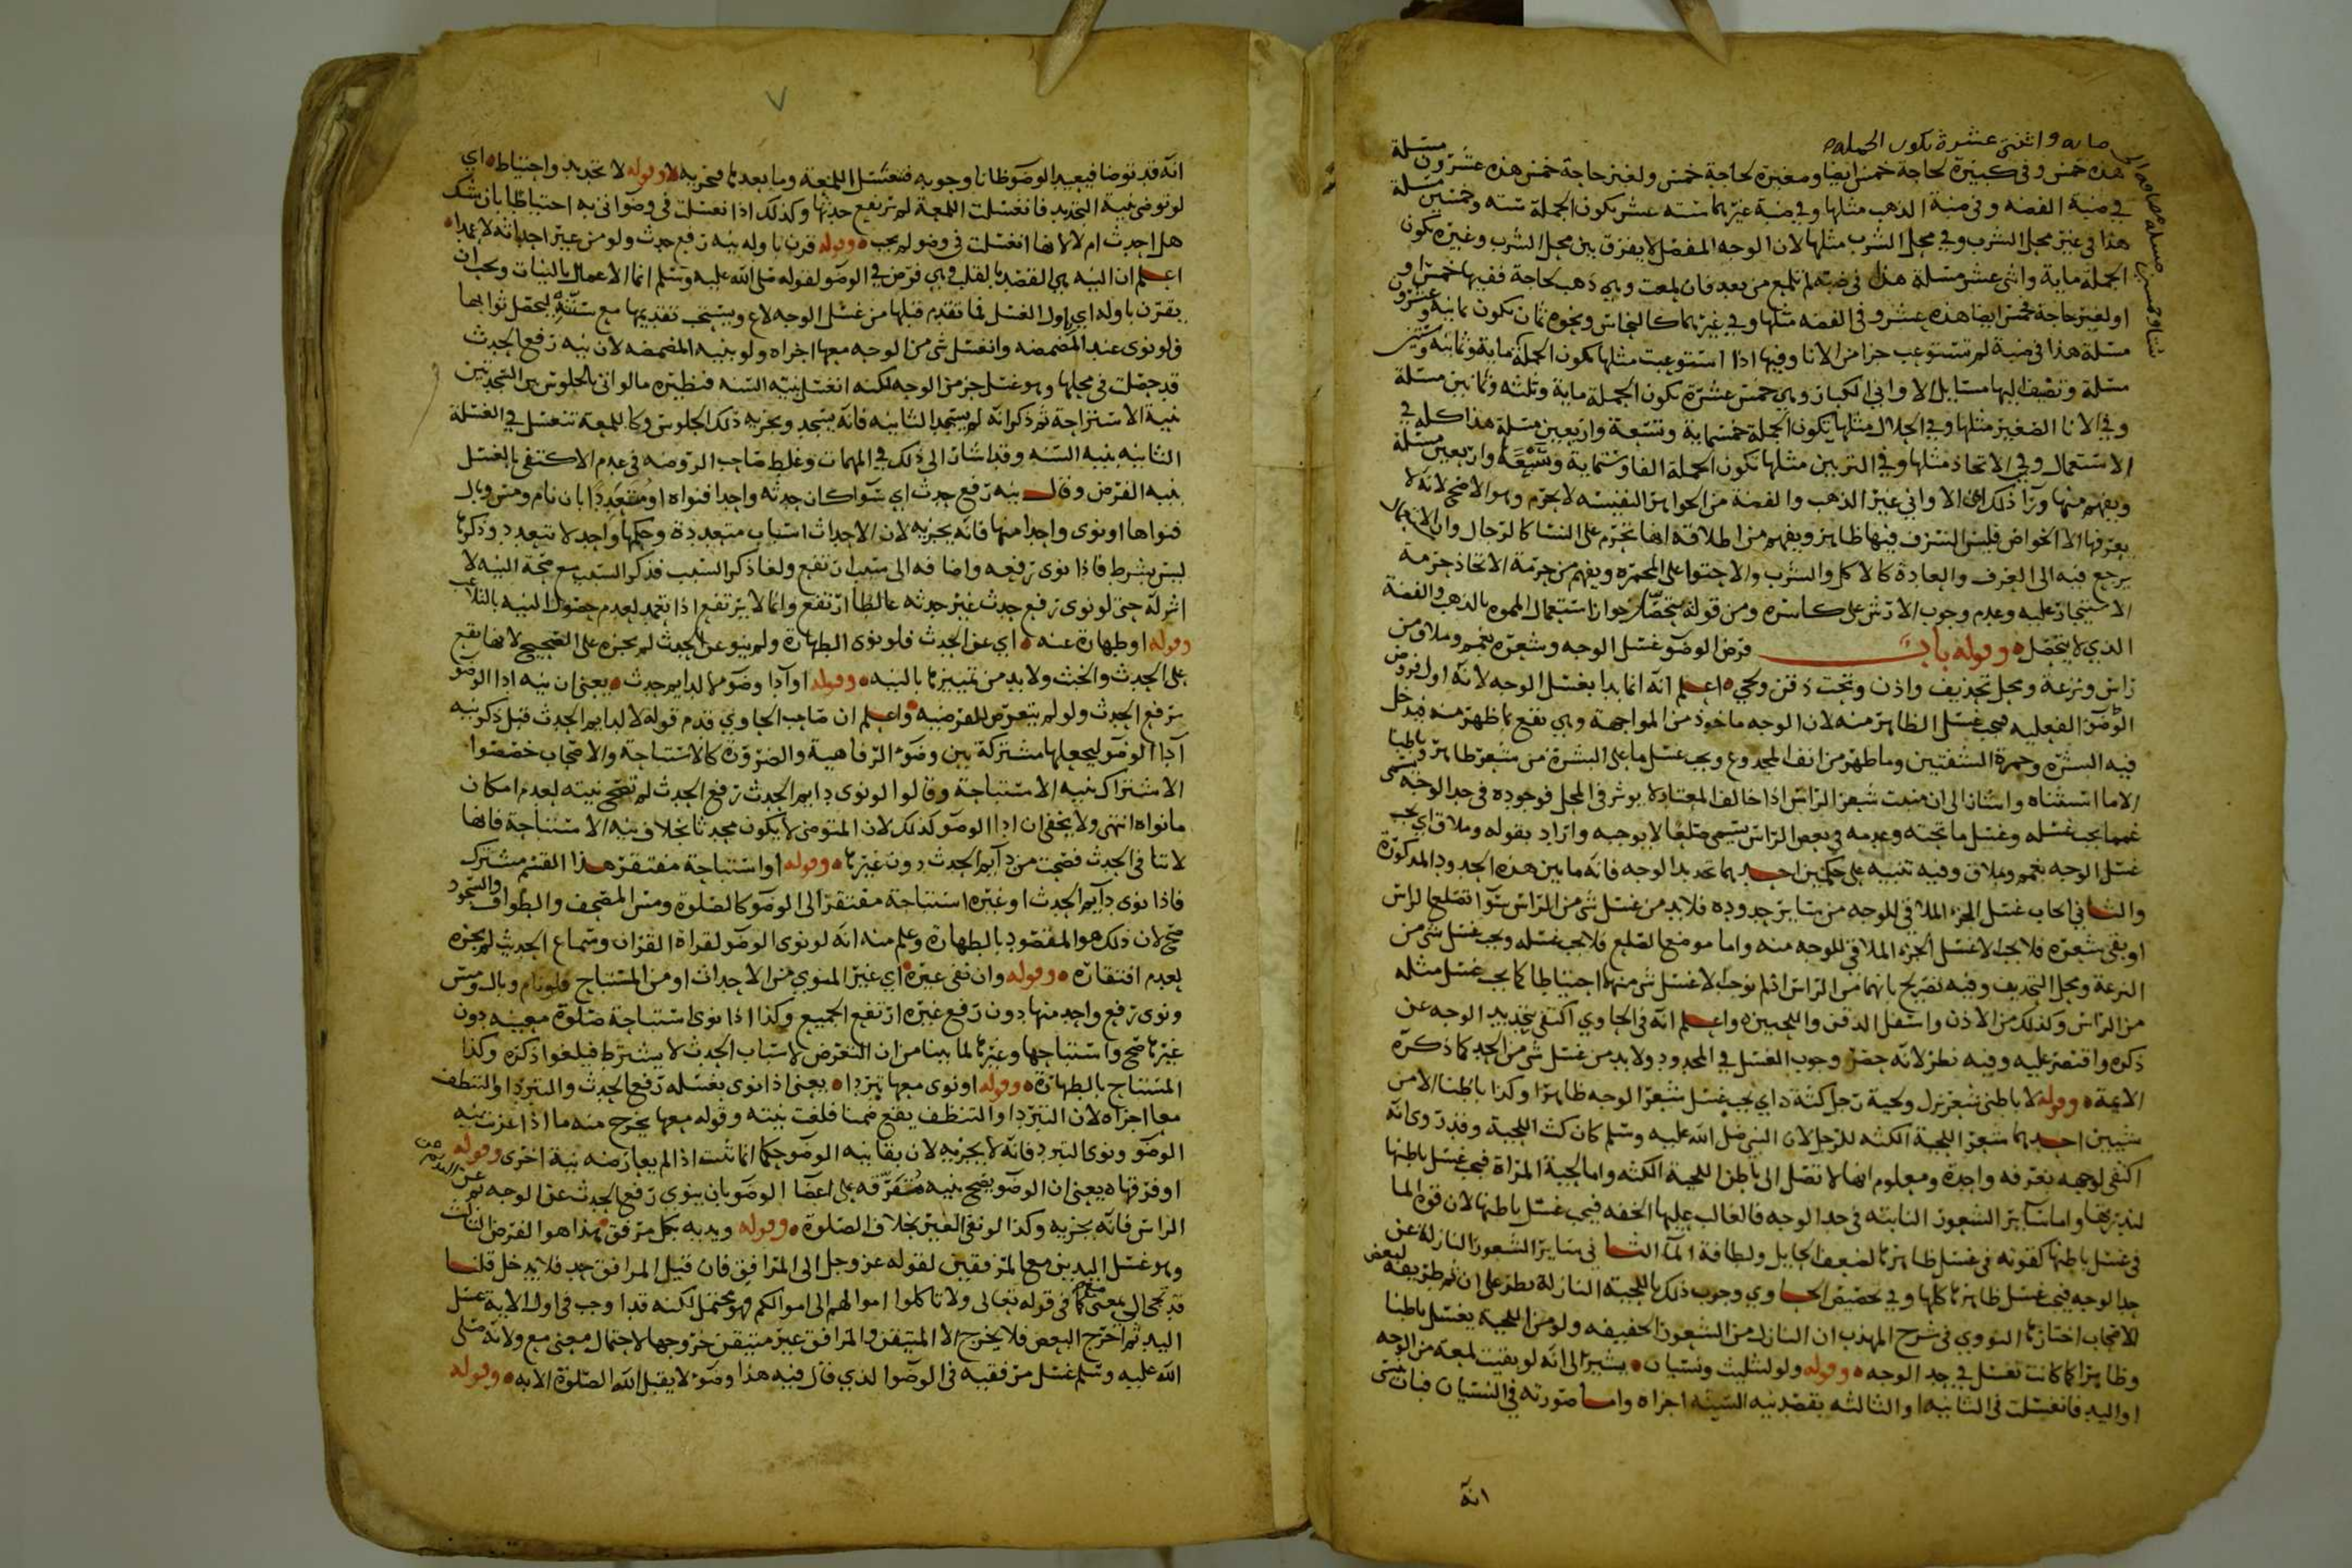 مايه واثنتى عشرة تكون الجمله
هذه خمس وفي كبيرة لحاجة خمس ايضا وصغيرة لحاجة خمس ولغير حاجة خمس هذه عشرون مسئلة
في ضبة الفضه وفي ضبة الذهب مثلها وفي ضبة غيرهما سته عشر تكون الجملة سته وخمسين مسئلة
هذا في غير محل الشرب وفي محل الشرب مثلها لان الوجه المفصل لا يفرق بين محل الشرب وغيره تكون
الجملة ماية واثنى عشر مسئلة هذا في ضبة لم تلمع من بعد فان لمعت وهي ذهب لحاجة ففيها خمس او
او لغير حاجة فخمس ايضا هذه عشر وفي الفضه مثلها وفي غيرهما كالنحاس ونحوه ثمان تكون ثمانيه وعشرون
مسئلة هذا في ضبة لم تستوعب جزا من الانا وفيها اذا استوعبت مثلها تكون الجملة ماية وثمانيه وستين
مسئلة وتضيف اليها مسايل الاواني الكبار وهي خمس عشرة تكون الجملة ماية وثلثه وثمانين مسئلة
وفي الانا الصغير مثلها وفي الخلال مثلها تكون الجملة خمسماية وتسعة واربعين مسئلة هذا كله في
الاستعمال وفي الاتخاذ مثلها وفي التزيين مثلها تكون الجملة الفا وستماية وسبعة واربعين مسئلة
ويفهم منها ورآ ذلك ان الاواني غير الذهب والفضة من الجواهر النفيسه لا يحرم وهو الاصح لانه لا
يعرفها الا الخواص فليس السرف فيها ظاهر ويفهم من اطلاقه انها تحرم على النسا كالرجال وان الاستعمال
يرجع فيه الى العرف والعادة كالاكل والشرب والاحتوا على المجمره ويفهم من حرمة الاتخاذ حرمة
الاستيجار عليه وعدم وجوب الارش على كاسره ومن قوله يتحصل جواز استعمال المموه بالذهب والفضة
الذي لا يتحصل وقوله باب فرض الوضو غسل الوجه وشعره يعم وملاق من
راس ونزعة ومحل تحذيف واذن وتحت ذقن ولحي اعلم انه انما بدا بغسل الوجه لانه اول فروض
الوضو الفعليه يجب غسل الظاهر منه لان الوجه ماخوذ من المواجهة وهي تقع بما ظهر منه فيدخل
فيه البشره وحمرة الشفتين وما ظهر من انف المجدوع ويجب غسل ما على البشرة من شعر ظاهر وباطنا
الا ما استثناه واشار الى ان منبت شعر الراس اذا خالف المعتاد لا يوثر في المحل فوجوده في حد الوجه يسمى
غمما يجب غسله وغسل ما تحته وعدمه في بعض الراس يسمى صلعا لا يوجبه واراد بقوله وملاق اي يجب
غسل الوجه بغمم وملاق وفيه تنبيه على حكمين احدهما تحديد الوجه فانه ما بين هذه الحدود المذكورة
والثاني ايجاب غسل الجزء الملاقي للوجه من ساير حدوده فلا بد من غسل شي من الراس سوآ تصلع الراس
او بقي شعره فلا يجب الا غسل الجزء الملاقي للوجه منه واما موضع الصلع فلا يجب غسله ويجب غسل شي من
النزعة ومحل التحذيف وفيه تصريح بانهما من الراس اذ لم يوجب الا غسل شي منهما احتياطا كما يجب غسل مثله
من الراس وكذلك من الاذن واسفل الذقن واللحيين واعلم انه في الحاوي اكتفى بتحديد الوجه عن
ذكره واقتصر عليه وفيه نظر لانه حصر وجوب الغسل في المحدود ولا بد من غسل شي من الحد كما ذكره
الايمة وقوله لا باطن شعر نزل ولحية رجل كثة اي يجب غسل شعر الوجه ظاهرا وكذا باطنا الا من
شيين احدهما شعر اللحية الكثه للرجل لان النبي صلى الله عليه وسلم كان كث اللحية وقد روى انه
اكتفى لوجهه بغرفه واحدة ومعلوم انها لا تصل الى باطن اللحية الكثه واما لحية المراة فيجب غسل باطنها
لندرتها واما ساير الشعور النابته في حد الوجه فالغالب عليها الخفه فيجب غسل باطنها لان قوة الما
في غسل باطنها كقوته في غسل ظاهرها لضعف الحايل ولطافة المآ الثاني ساير الشعور النازلة عن
حد الوجه فيجب غسل ظاهرها كلها وفي تخصيص الحاوي وجوب ذلك باللحية النازلة نظر على ان ثم طريقه لبعض
الاصحاب اختارها النووي في شرح المهذب ان النازل من الشعور الخفيفه ولو من اللحية يغسل باطنا
وظاهرا كما كانت تغسل في حد الوجه وقوله ولو لتثليث ونسيان يشير الى انه لو بقيت لمعة من الوجه
او اليد فانغسلت في الثانيه او الثالثه بقصد نيه السنه اجزاه واما صورته في النسيان فبان نسى
انه
انه قد توضا فيعيد الوضو ظانا وجوبه فتغسل اللمعة وما بعدها فيجزيه وقوله لا تجديد واحتياط اي
لو توضى نية التجديد فانغسلت اللمعة لم يرتفع حدثها وكذلك اذا انغسلت في وضو اتى به احتياطا بان شك
هل احدث ام لا لانها انغسلت في وضو لم يجب وقوله قرن باوله نيه رفع حدث ولو من غير احداثه لا عمدا
اعلم ان النيه هي القصد بالقلب وهي فرض في الوضو لقوله صلى الله عليه وسلم انما الاعمال بالنيات ويجب ان
يقرن باوله اي باول الغسل فما تقدم قبلها من غسل الوجه لاغ ويستحب تقديمها مع سننه ليحصل ثوابها
فلو نوى عند المضمضه وانغسل شي من الوجه معها اجزاه ولو بنيه المضمضه لان نيه رفع الحدث
قد حصلت في محلها وهو غسل جز من الوجه لكنه انغسل بنيه السنه فنظيره ما لو اتى بالجلوس بين السجدتين
نية الاستراحة ثم ذكر انه لم يسجد الثانيه فانه يسجد ويجزيه ذلك الجلوس وكاللمعة تنغسل في الغسلة
الثانيه بنيه السنه وقد اشار الى ذلك في المهمات وغلط صاحب الروضه في عدم الاكتفى بالغسل
بنيه الفرض وقال نيه رفع حدث اي سوآ كان حدثه واحدا فنواه او متعددا بان نام ومس وبال
فنواها او نوى واحدا منها فانه يجزيه لان الاحداث اسباب متعددة وحكمها واحد لا تتعدد وذكرها
ليس بشرط فاذا نوى رفعه واضافه الى سبب ارتفع ولغا ذكر السبب فذكر السبب مع صحة النيه لا
اثر له حتى لو نوى رفع حدث غير حدثه غالطا ارتفع وانما لا يرتفع اذا تعمد لعدم حصول النيه بالتلاعب
وقوله او طهارة عنه اي عن الحدث فلو نوى الطهارة ولم ينو عن الحدث لم يجزه على الصحيح لانها تقع
على الحدث والخبث ولا بد من تمييزها بالنيه وقوله او آدا وضو لا لدايم حدث يعني ان نيه ادا الوضو
يرفع الحدث ولو لم يتعرض للفرضيه واعلم ان صاحب الحاوي قدم قوله لا لدايم الحدث قبل ذكر نيه
آدا الوضو ليجعلها مشتركة بين وضو الرفاهية والضرورة كالاستباحة والاصحاب خصصوا
الاشتراك بنيه الاستباحة وقالوا لو نوى دايم الحدث رفع الحدث لم تصح نيته لعدم امكان
ما نواه انتهى ولا يخفى ان ادا الوضو كذلك لان المتوضى لا يكون محدثا بخلاف نيه الاستباحة فانها
لا تنافي الحدث فصحت من دايم الحدث دون غيرها وقوله او استباحة مفتقر هذا القسم مشترك
فاذا نوى دآيم الحدث او غيره استباحة مفتقر الى الوضو كالصلوة ومس المصحف والطواف والسجود
صح لان ذلك هو المقصود بالطهارة وعلم منه انه لو نوى الوضو لقراة القران وسماع الحديث لم يجزه
لعدم افتقاره وقوله وان نفى غيره اي غير المنوي من الاحداث او من المستباح فلو نام وبال ومس
ونوى رفع واحد منها دون رفع غيره ارتفع الجميع وكذا اذا نوى استباحة صلوة معينه دون
غيرها صح واستباحها وغيرها لما بينا من ان التعرض لاسباب الحدث لا يشترط فيلغوا ذكره وكذا
المستباح بالطهارة وقوله او نوى معها تبردا يعني اذا نوى بغسله رفع الحدث والتبرد او التنظف
معا اجزاه لان التبرد او التنظف يقع ضمنا فلغت نيته وقوله معها يخرج منه ما اذا عزبت نيه
الوضو ونوى التبرد فانه لا يجزيه لان بقا نيه الوضو حكما انما تثبت اذا لم يعارضه نية اخرى وقوله
او فرقها يعني ان الوضو يصح بنيه متفرقه على اعضا الوضو بان ينوي رفع الحدث عن الوجه ثم عن اليدين ثم عن
الراس فانه يجزيه وكذا لو نفى الغير بخلاف الصلوة وقوله ويديه بكل مرفق هذا هو الفرض الثالث
وهو غسل اليدين مع المرفقين لقوله عز وجل الى المرافق فان قيل المرافق حد فلا يدخل قلنا
قد تجي الى بمعنى مع كما في قوله تعالى ولا تاكلوا اموالهم الى اموالكم فهو محتمل لكنه قد اوجب في اول الاية غسل
اليد ثم اخرج البعض فلا يخرج الا المتيقن والمرافق غير متيقن خروجها لاحتمال معنى مع ولانه صلى
الله عليه وسلم غسل مرفقيه في الوضوا لذي قال فيه هذا وضو لا يقبل الله الصلوة الا به وقوله